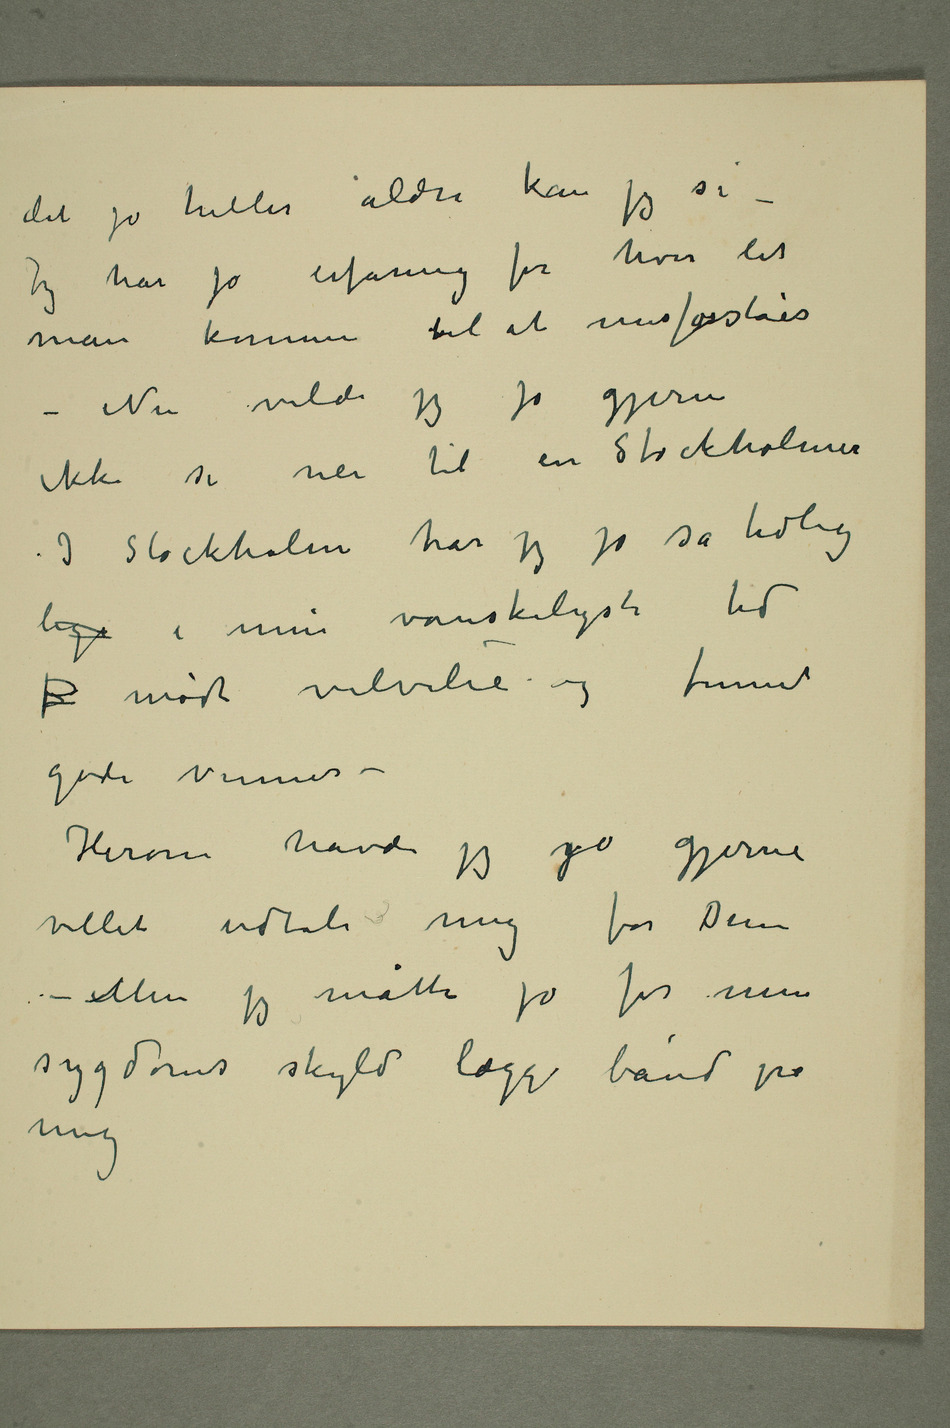 det jo heller aldri kan jeg si –
Jeg har jo erfaring for hvor let
man kommer til at misforståes
– Nu vilde jeg jo gjerne
ikke si nei til en Stockholmer
I Stockholm har jeg jo så tidlig
lige i min vanskeligste tid
F mødt velvilie og funnet
gode venner –
Herom havde jeg jo gjerne
villet udtale mig for Dem
– Men jeg måtte jo for min
sygdoms skyld lægge bånd på
mig